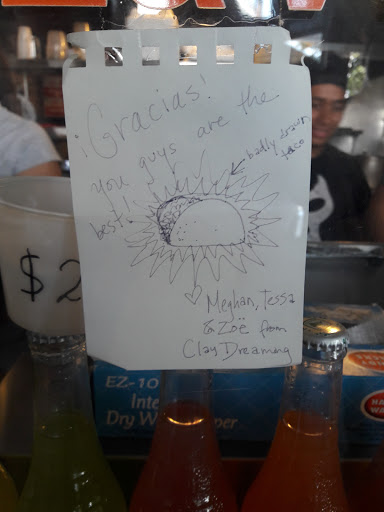 ¡Gracias!
you guys are the
best!
badly drawn
taco
♡ Meghan, Tessa
& Zoë from
Clay Dreaming
$2
EZ-10
Inte
Dry W per